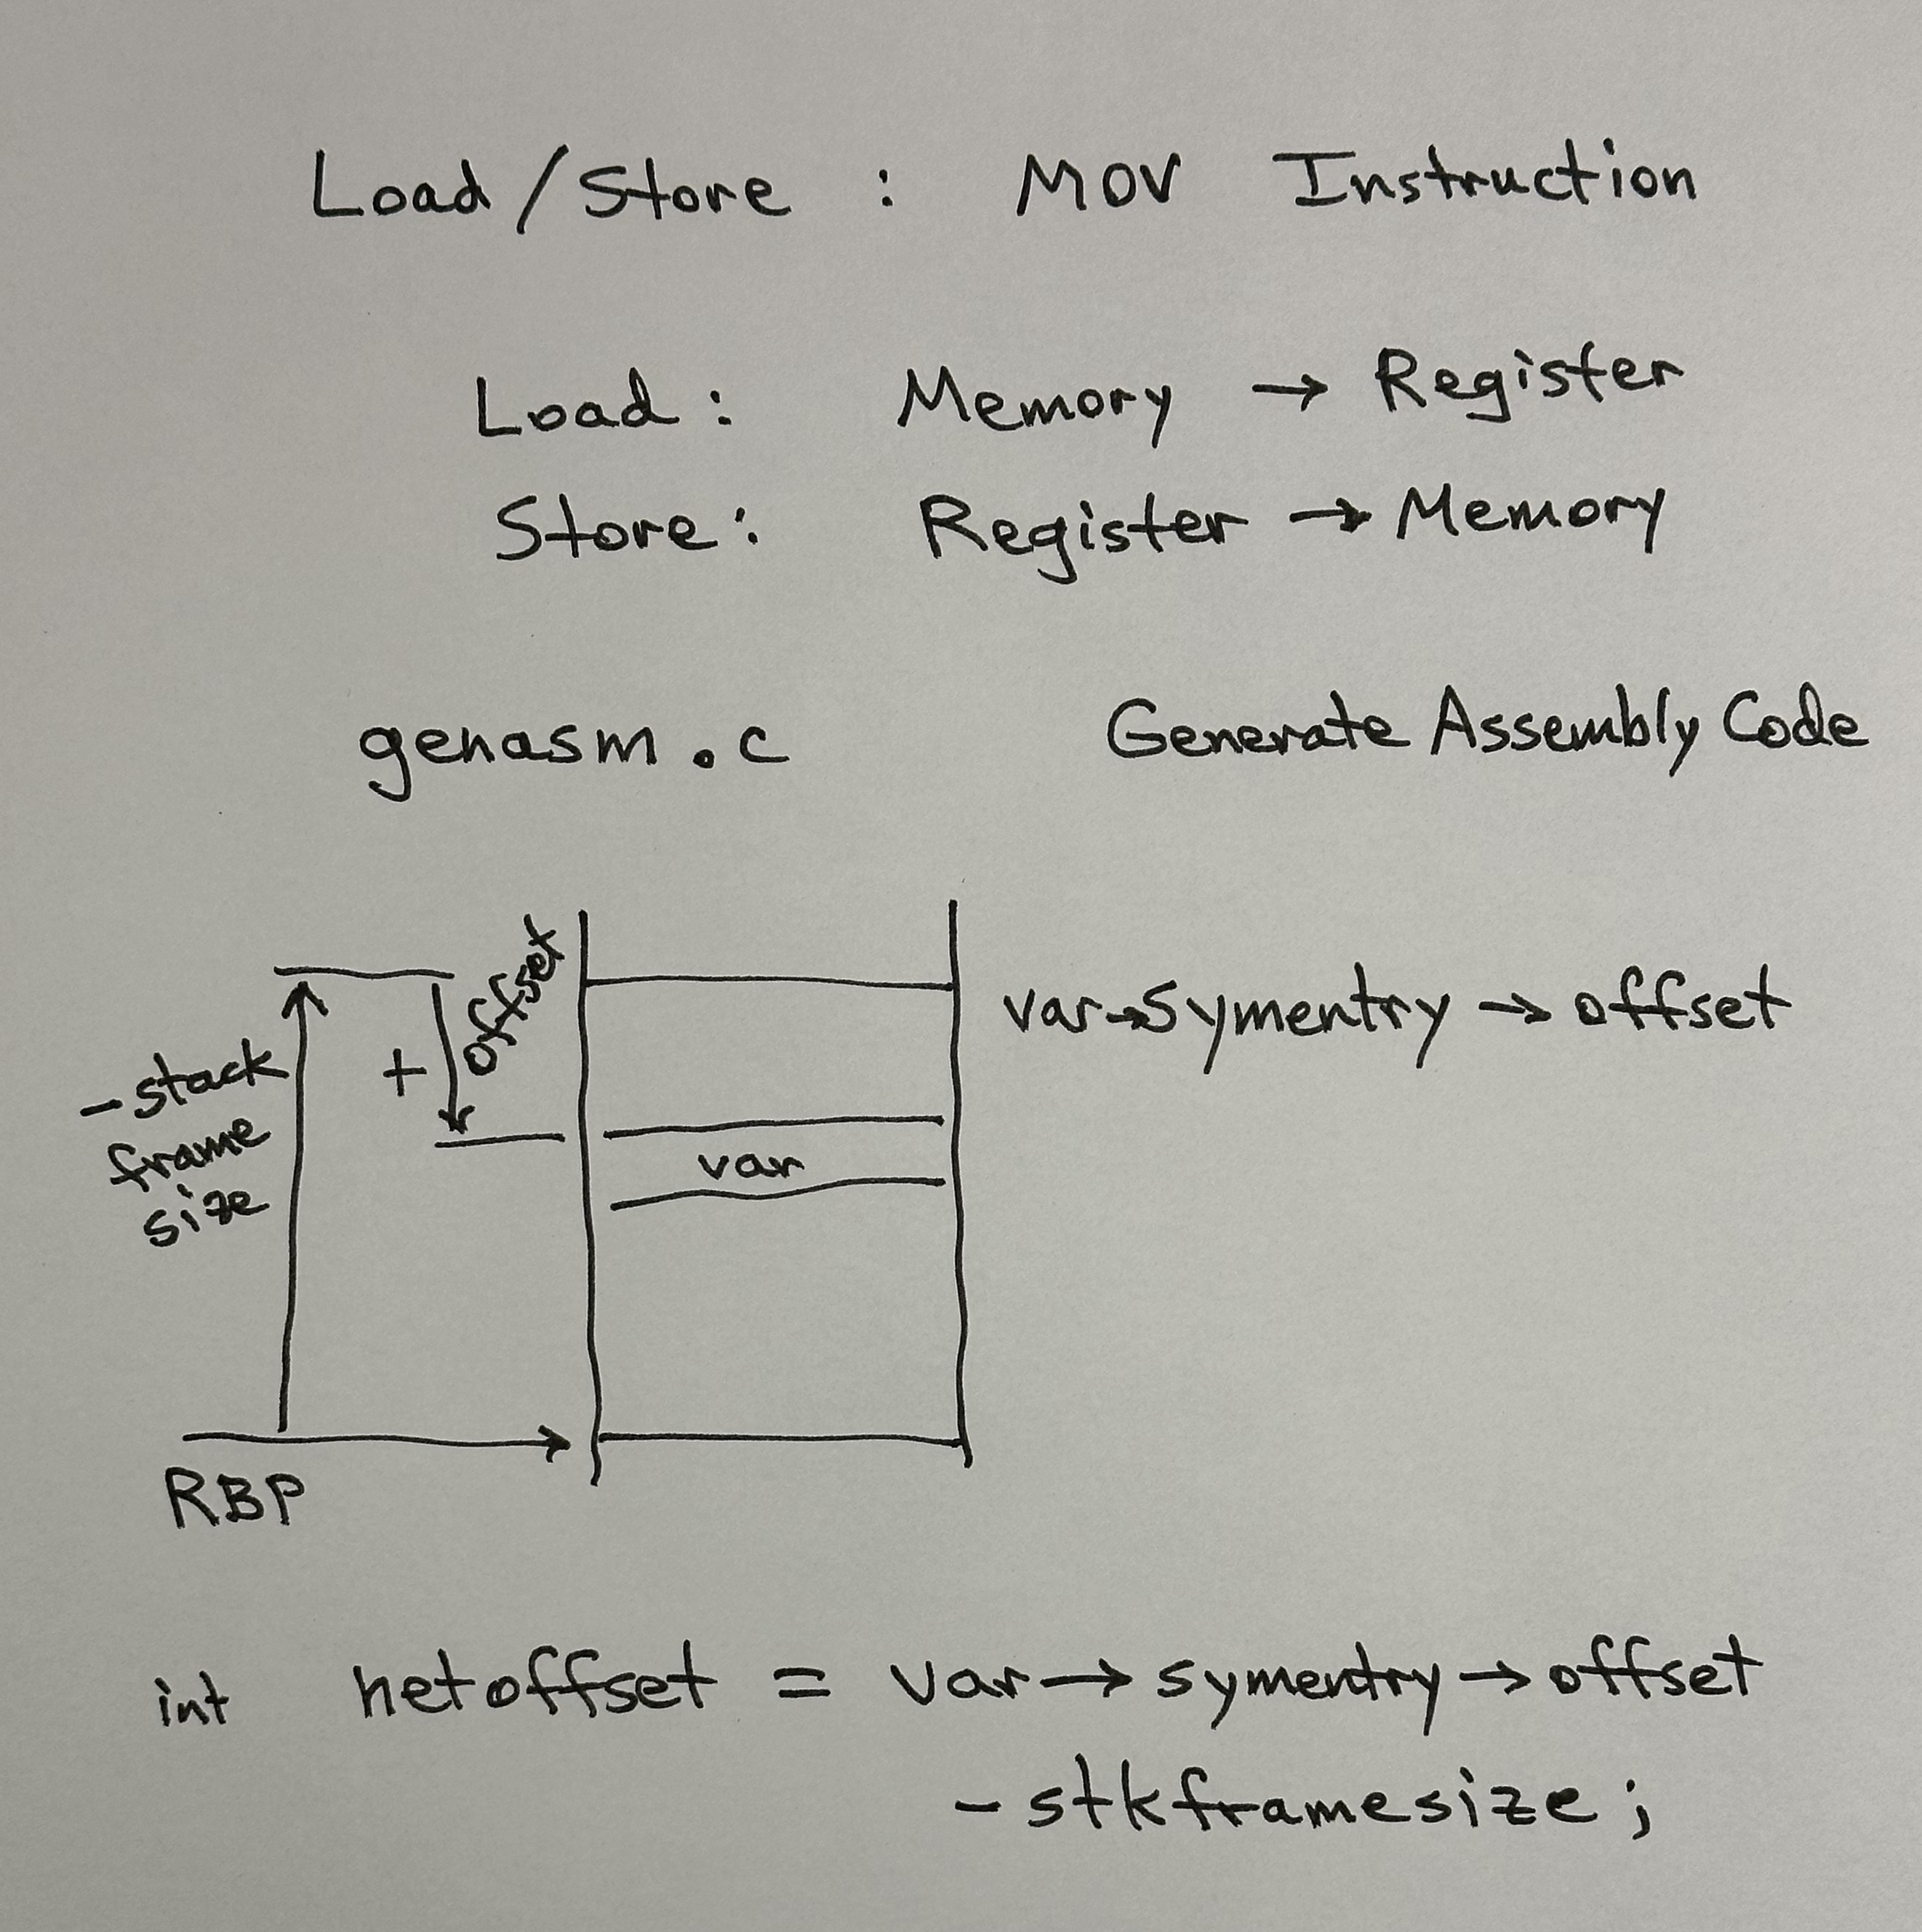 Load/Store : MOV Instruction
Load: Memory → Register
Store: Register → Memory
genasm.c Generate Assembly Code
offset
var→symentry → offset
+
-stack
frame
size
var
RBP
int netoffset = var→symentry→offset
-stkframesize;